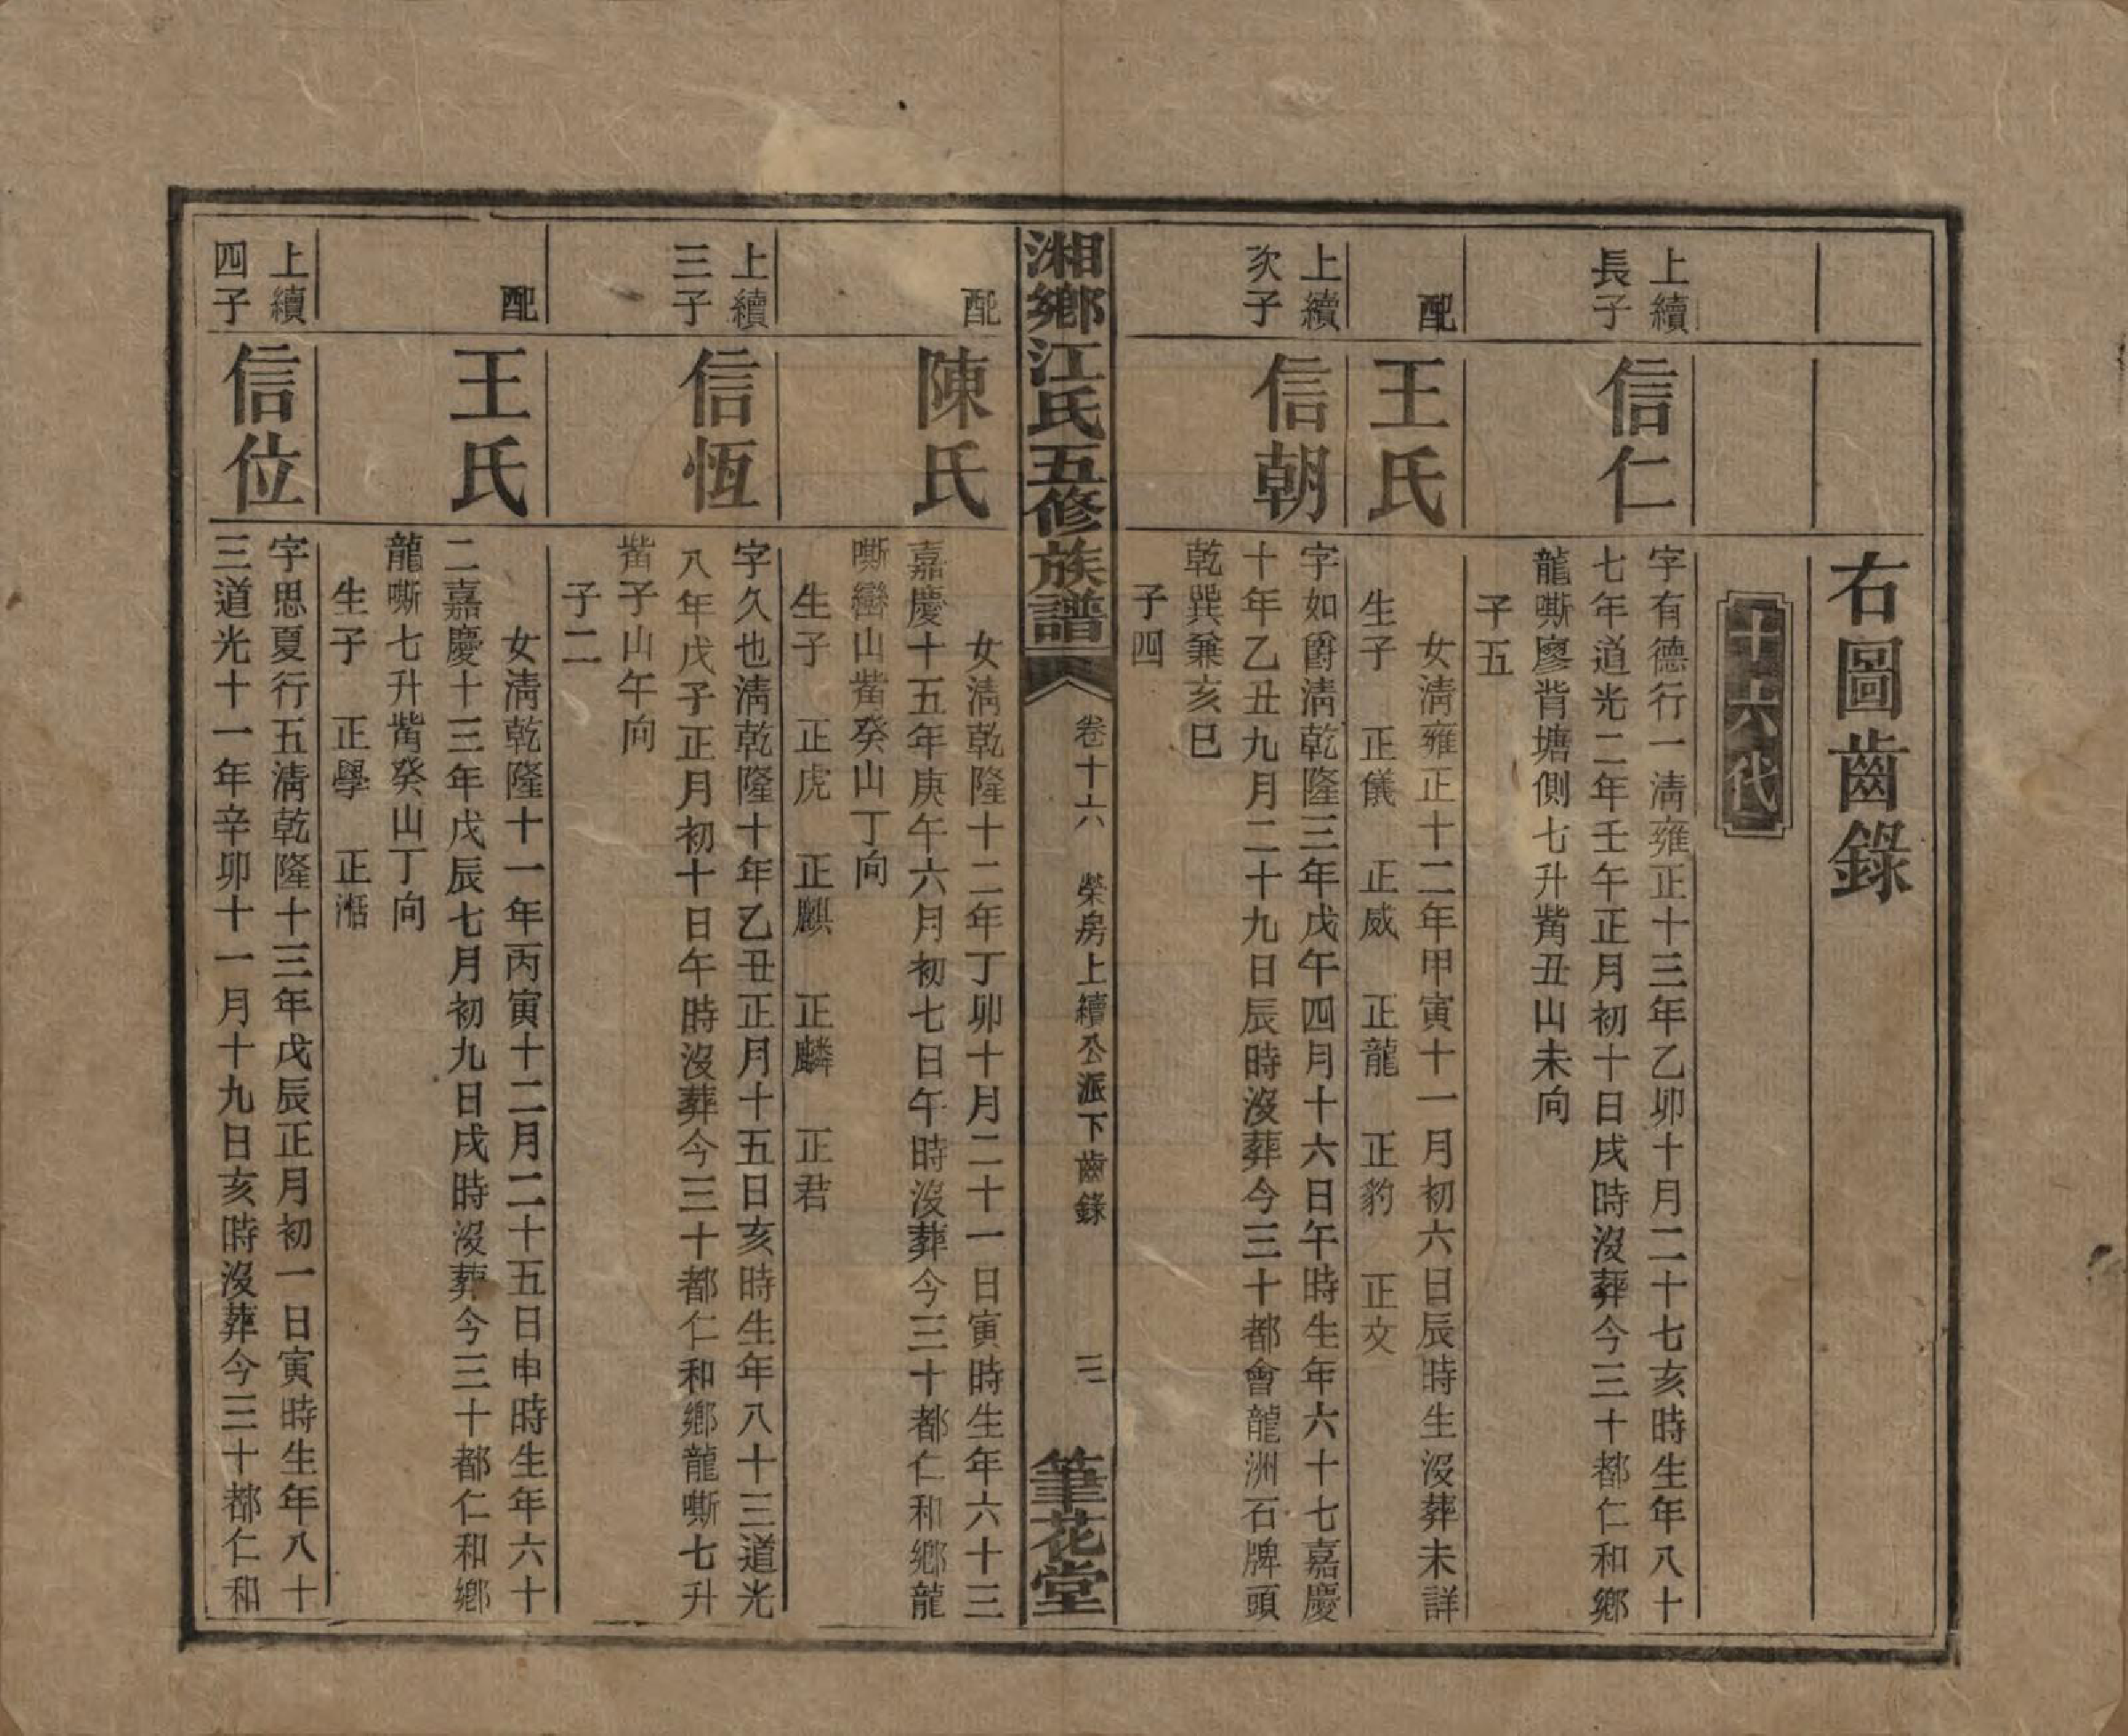 右圖齒錄
十六代
上續
長子
信仁
字有德行一清雍正十三年乙卯十月二十七亥時生年八十
七年道光二年壬午正月初十日戌時沒葬今三十都仁和鄉
龍嘶廖背塘側七升觜丑山未向
子五
配
王氏
女清雍正十二年甲寅十一月初六日辰時生沒葬未詳
生子 正儀 正威 正龍 正豹 正文
上續
次子
信朝
字如爵清乾隆三年戊午四月十六日午時生年六十七嘉慶
十年乙丑九月二十九日辰時沒葬今三十都會龍洲石牌頭
乾巽兼亥巳
子四
湘鄉江氏五修族譜
卷十六 榮房上續公派下齒錄 三
筆花堂
配
陳氏
女清乾隆十二年丁卯十月二十一日寅時生年六十三
嘉慶十五年庚午六月初七日午時沒葬今三十都仁和鄉龍
嘶巒山觜癸山丁向
生子 正虎 正麒 正麟 正君
上續
三子
信恆
字久也清乾隆十年乙丑正月十五日亥時生年八十三道光
八年戊子正月初十日午時沒葬今三十都仁和鄉龍嘶七升
觜子山午向
子二
配
王氏
女清乾隆十一年丙寅十二月二十五日申時生年六十
二嘉慶十三年戊辰七月初九日戌時沒葬今三十都仁和鄉
龍嘶七升觜癸山丁向
生子 正學 正湉
上續
四子
信位
字思夏行五清乾隆十三年戊辰正月初一日寅時生年八十
三道光十一年辛卯十一月十九日亥時沒葬今三十都仁和